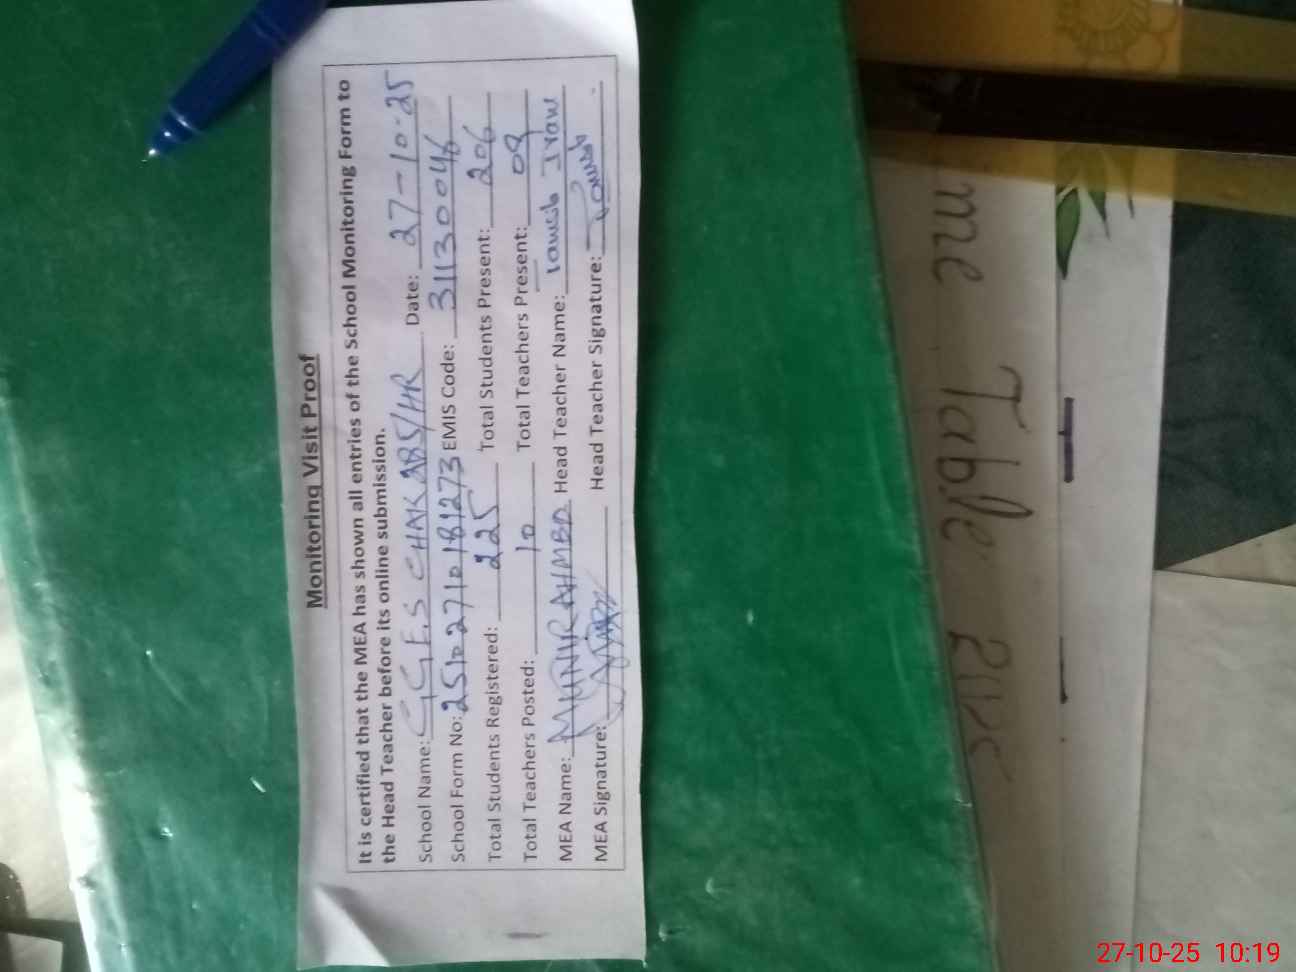 Monitoring Visit Proof
It is certified that the MEA has shown all entries of the School Monitoring Form to
the Head Teacher before its online submission.
School Name: G.G.E.S CHAK 285/HR Date: 27-10-25
School Form No: 25102710181273 EMIS Code: 31130046
Total Students Registered: 225 Total Students Present: 206
Total Teachers Posted: 10 Total Teachers Present: 09
MEA Name: MUNIR AHMED Head Teacher Name:
MEA Signature: Head Teacher Signature:
me Table
27-10-25 10:19